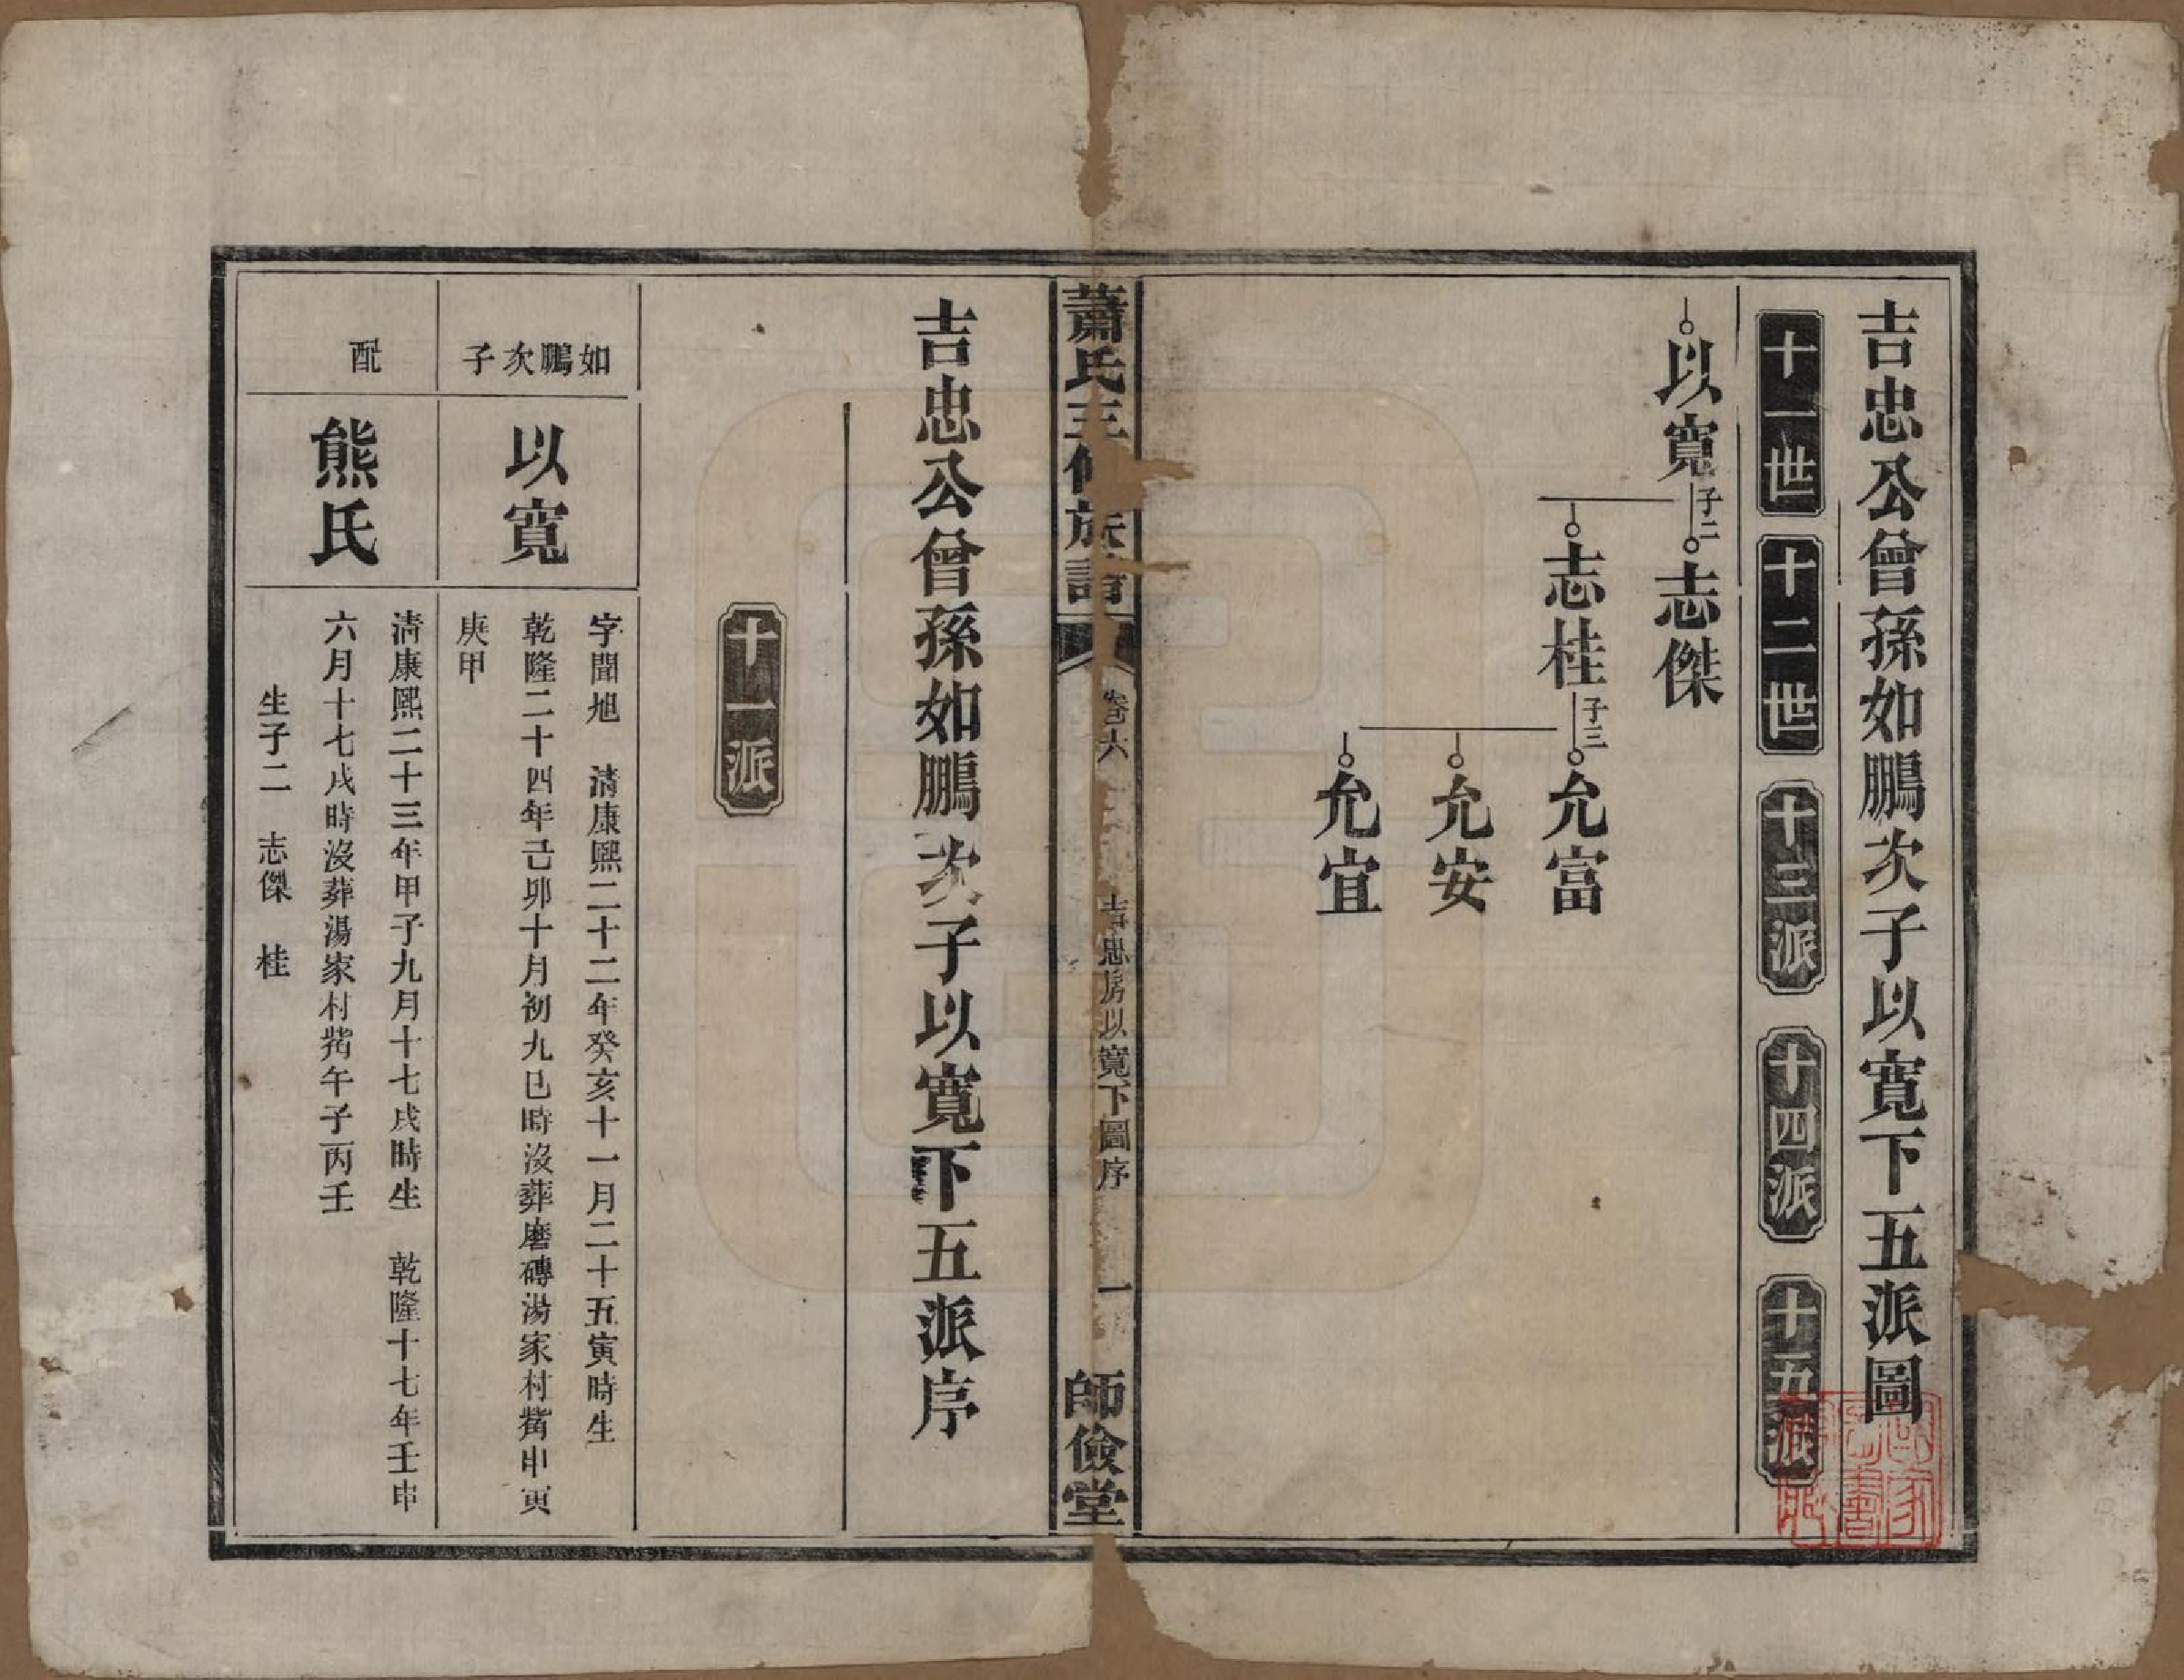 吉忠公曾孫如鵬次子以寬下五派圖
十一世
十二世
十三派
十四派
十五派
以寬
子二
志傑
志桂
子三
允富
允安
允宜
蕭氏三修族譜
卷六
吉忠房以寬下圖序
一
師儉堂
吉忠公曾孫如鵬次子以寬下五派序
十一派
如鵬次子
以寬
字聞旭 清康熙二十二年癸亥十一月二十五寅時生
乾隆二十四年己卯十月初九巳時沒葬磨磚湯家村觜申寅
庚甲
配
熊氏
清康熙二十三年甲子九月十七戌時生 乾隆十七年壬申
六月十七戌時沒葬湯家村觜午子丙壬
生子二 志傑 桂